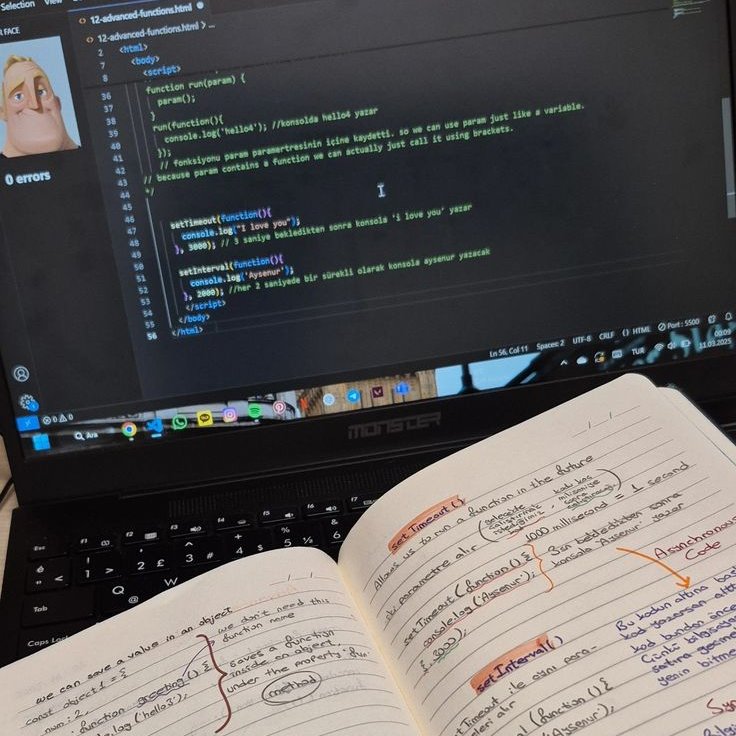 Selection View
R FACE
0 errors
12-advanced-functions.html
12-advanced-functions.html > ...
2 <html>
7 <body>
8 <script>
36 function run(param) {
37 param();
38 }
39 run(function(){
40 console.log('hello4'); //konsolda hello4 yazar
41 });
42 // fonksiyonu param paramertresinin içine kaydetti. so we can use param just like a variable.
43 // because param contains a function we can actually just call it using brackets.
44 */
45
46 setTimeout(function(){
47 console.log("I love you");
48 }, 3000); // 3 saniye bekledikten sonra konsola 'i love you' yazar
49
50 setInterval(function(){
51 console.log('Aysenur');
52 }, 2000); //her 2 saniyede bir sürekli olarak konsola aysenur yazacak
53 </script>
54
55 </body>
56 </html>
Ln 56, Col 11 Spaces: 2 UTF-8 CRLF {} HTML Port : 5500
0 0
Ara
TUR
00:09
11.03.2025
MONSTER
Esc F1 F2 F3 F4 F5 F6 F7
Tab Q W
Caps Lock
we can save a value in an object
const object1 = {
num : 2,
function greeting() {
log('hello3');
we don't need this
function name
saves a function
inside an object.
under the property fun
method
set Timeout ()
Allows us to run a function in the future
iki parametre alır
1000 millisecond = 1 second
setTimeout (function () {
console.log('Aysenur');
}, 3000);
3sn bekledikten sonra
konsola 'Aysenur' yazar
Asynchronous
Code
Bu kodun altına başka
kod yazarsan
kod bundan önce
Çünkü bilgisayar
satıra
yenin bitme
set Interval ()
Timeout ile aynı para-
(function () {
'Aysenur');